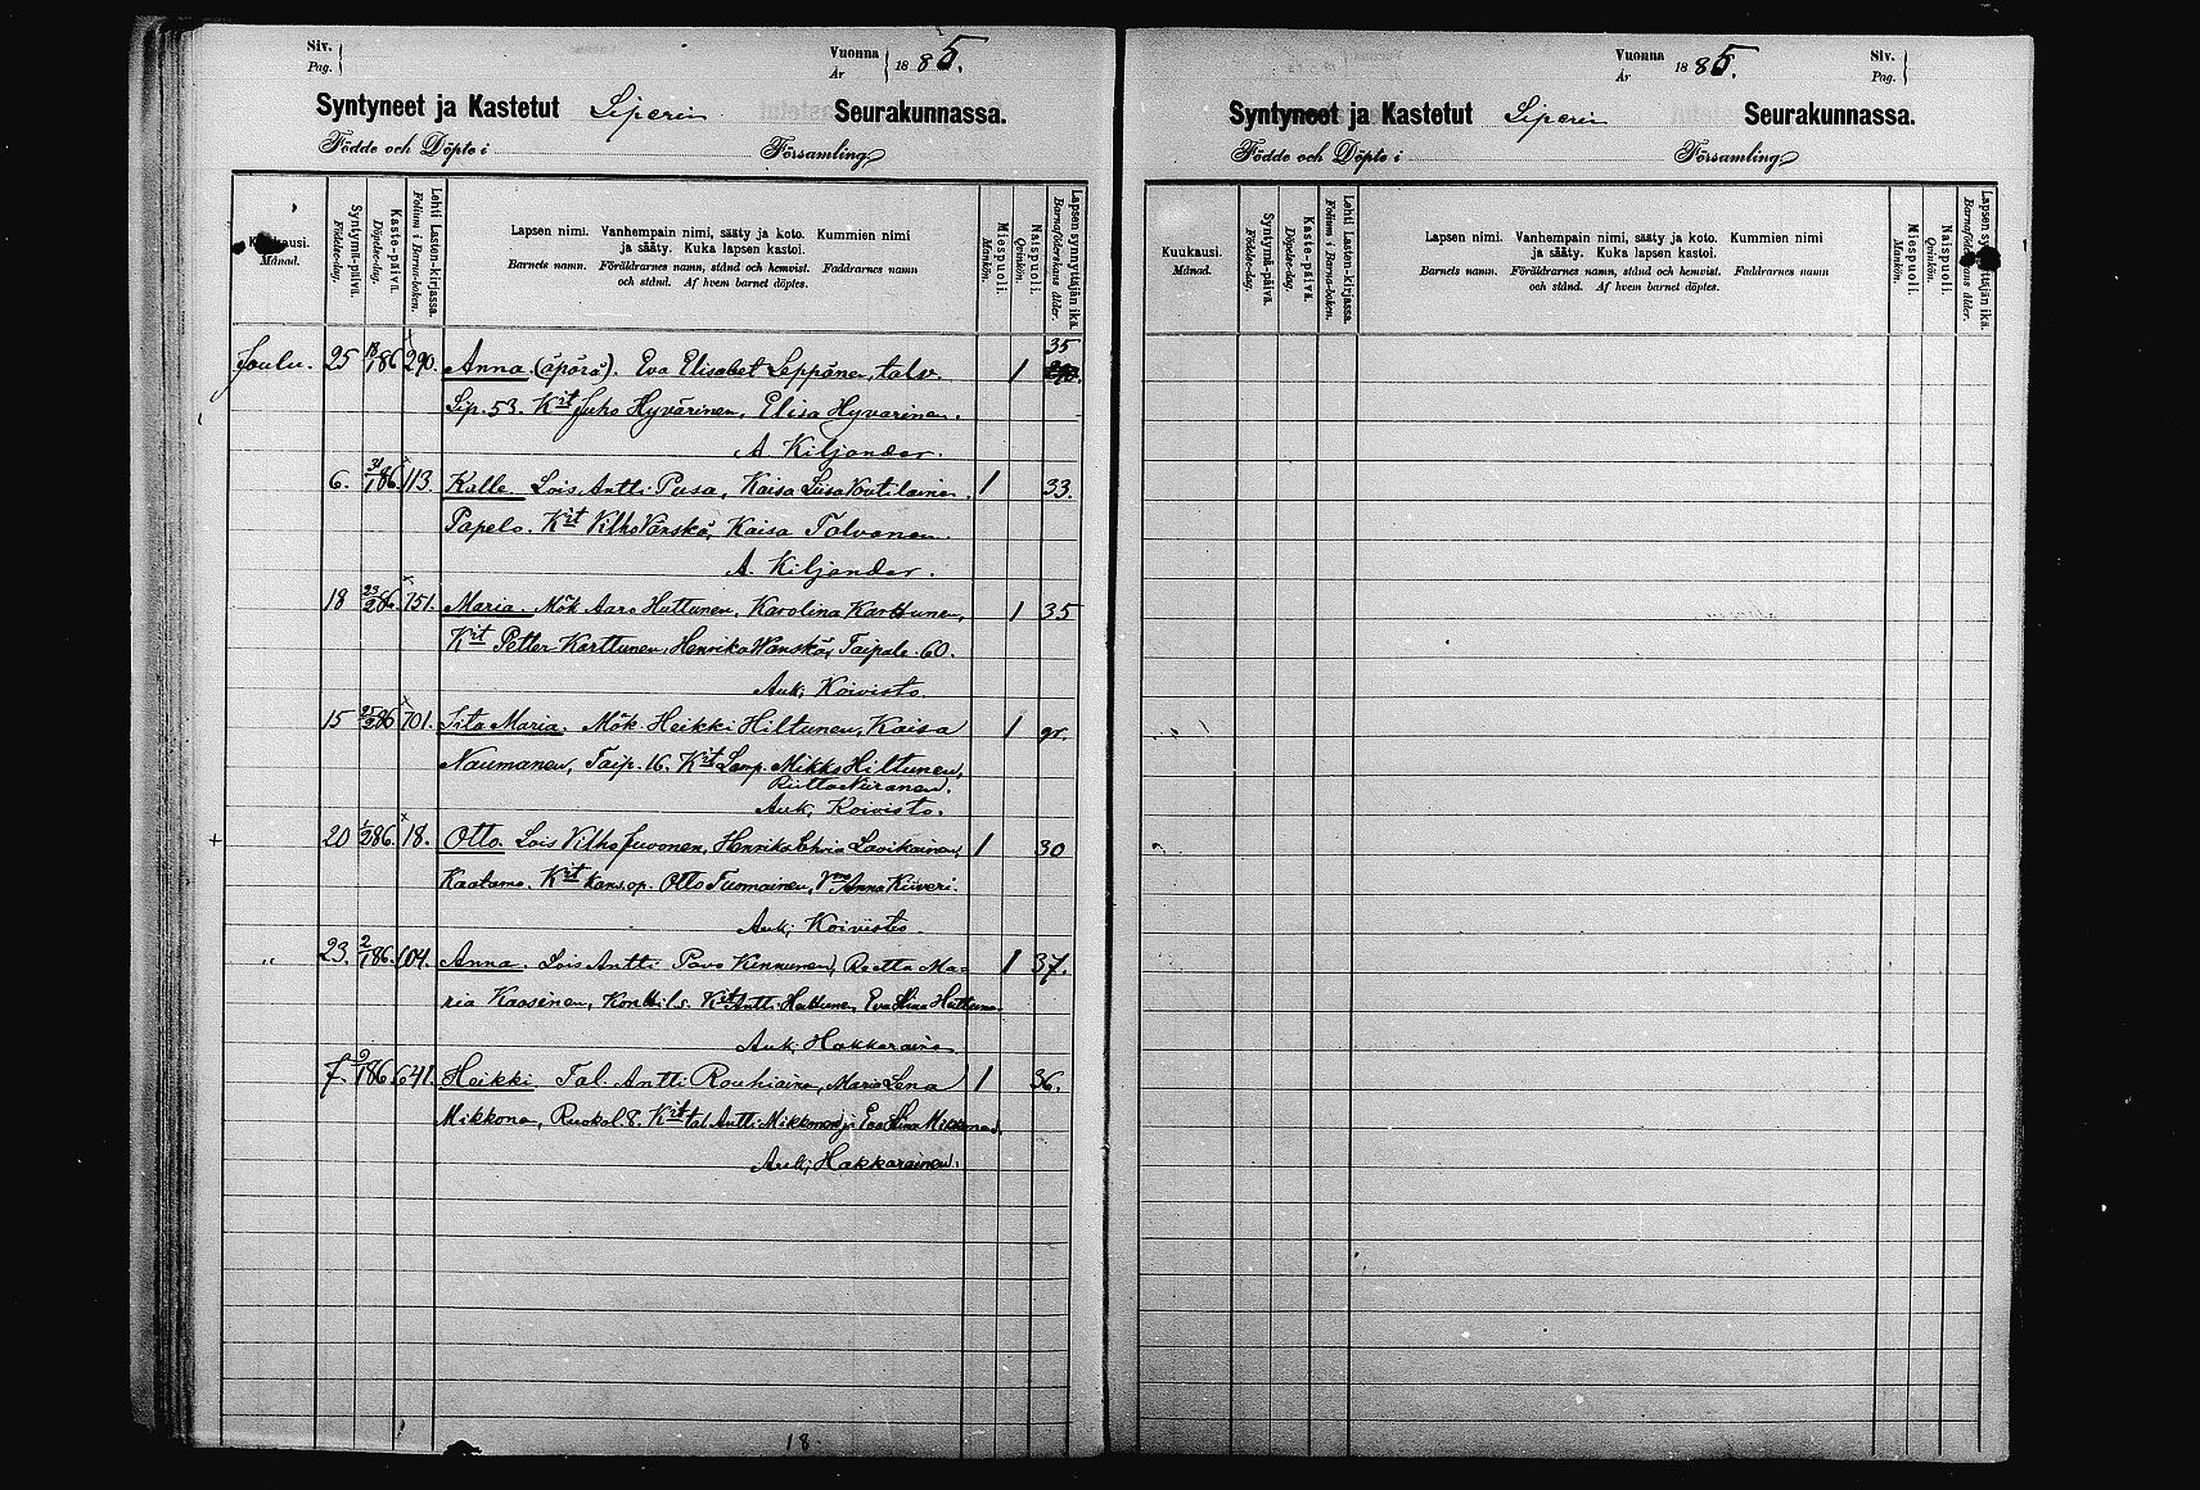 Siv.
Pag.
Vuonna
År
1885.
Syntyneet ja Kastetut Liperin Seurakunnassa.
Födde och Döpte i Församling
Kuukausi.
Månad.
Syntymä-päivä.
Födelse-dag.
Kaste-päivä.
Döpelse-dag.
Lehti Lasten-kirjassa.
Folium i Barna-boken.
Lapsen nimi. Vanhempain nimi, sääty ja koto. Kummien nimi
ja sääty. Kuka lapsen kastoi.
Barnets namn. Föräldrarnes namn, stånd och hemvist. Faddrarnes namn
och stånd. Af hvem barnet döptes.
Miespuoli.
Mankön.
Naispuoli.
Qvinkön.
Lapsen synnyttäjän ikä.
Barnaföderskans ålder.
35
Joulu. 25 18/1 86 290. Anna. (äpärä). Eva Elisabet Leppänen, talv. 1
Lip. 53. Kit Juho Hyvärinen, Elisa Hyvarinen.
A. Kiljander.
6. 31/1 86 113. Kalle. Lois. Antti Pusa, Kaisa Liisa Voutilainen. 1 33.
Papelo. Kit Vilho Vänskä, Kaisa Tolvanen.
A. Kiljander.
18 23/2 86. 751. Maria. Mök Aaro Huttunen, Karolina Karttunen, 1 35
Kit Petter Karttunen, Henrika Wänskä, Taipale. 60.
Auk; Koivisto.
15 25/2 86 701. Iita Maria. Mök. Heikki Hiltunen, Kaisa 1 gr.
Naumanen, Taip. 16. Kit Lamp. Mikko Hiltunen,
Riitta Niiranen.
Auk, Koivisto.
+ 20 1/2 86. 18. Otto. Lois Vilho Juvonen, Henrika Lavikainen, 1 30
Kaatamo. Kit kans.op. Otto Tuomainen, Vmo Anna Kiiveri.
Auk; Koivisto.
" 23. 2/1 86. 604. Anna. Lois Antti Pavo Kinnunen, Reetta Ma= 1 37.
ria Kaasinen, Konttil. 5. Kit Antti Huttunen, Eva Stina Huttunen.
Auk; Hakkarainen
7. 9/1 86 641. Heikki. Tal. Antti Rouhiainen, Maria Lena 1 36.
Mikkonen, Ruokol. 8. Kit tal. Antti Mikkonen ja Eva Stina Mikkonen.
Auk; Hakkarainen.
18
Vuonna
År
1885.
Siv.
Pag.
Syntyneet ja Kastetut Liperin Seurakunnassa.
Födde och Döpte i Församling
Kuukausi.
Månad.
Syntymä-päivä.
Födelse-dag.
Kaste-päivä.
Döpelse-dag.
Lehti Lasten-kirjassa.
Folium i Barna-boken.
Lapsen nimi. Vanhempain nimi, sääty ja koto. Kummien nimi
ja sääty. Kuka lapsen kastoi.
Barnets namn. Föräldrarnes namn, stånd och hemvist. Faddrarnes namn
och stånd. Af hvem barnet döptes.
Miespuoli.
Mankön.
Naispuoli.
Qvinkön.
Lapsen synnyttäjän ikä.
Barnaföderskans ålder.